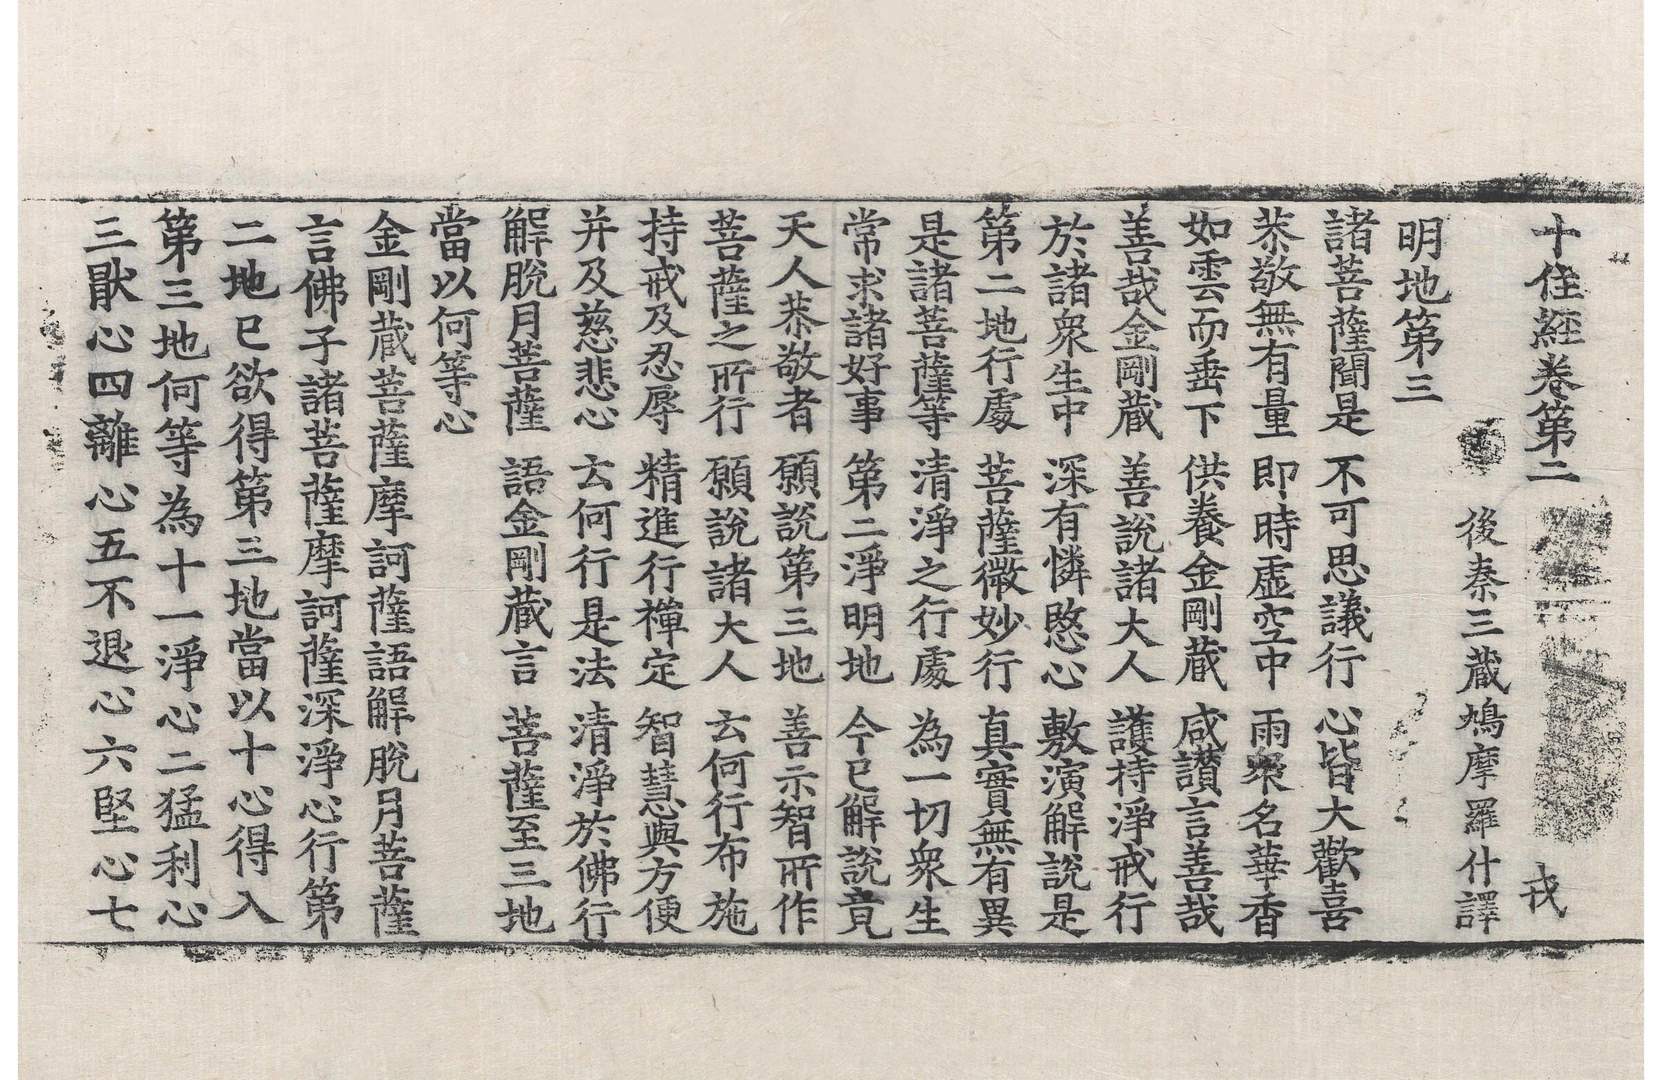 十住經卷第二 戎
後秦三藏鳩摩羅什譯
明地第三
諸菩薩聞是 不可思議行 心皆大歡喜
恭敬無有量 即時虛空中 雨衆名華香
如雲而垂下 供養金剛藏 咸讚言善哉
善哉金剛藏 善說諸大人 護持淨戒行
於諸衆生中 深有憐愍心 敷演解說是
第二地行處 菩薩微妙行 真實無有異
是諸菩薩等 清淨之行處 為一切衆生
常求諸好事 第二淨明地 今已解說竟
天人恭敬者 願說第三地 善示智所作
菩薩之所行 願說諸大人 云何行布施
持戒及忍辱 精進行禪定 智慧與方便
并及慈悲心 云何行是法 清淨於佛行
解脫月菩薩 語金剛藏言 菩薩至三地
當以何等心
金剛藏菩薩摩訶薩語解脫月菩薩
言佛子諸菩薩摩訶薩深淨心行第
二地已欲得第三地當以十心得入
第三地何等為十一淨心二猛利心
三猒心四離心五不退心六堅心七